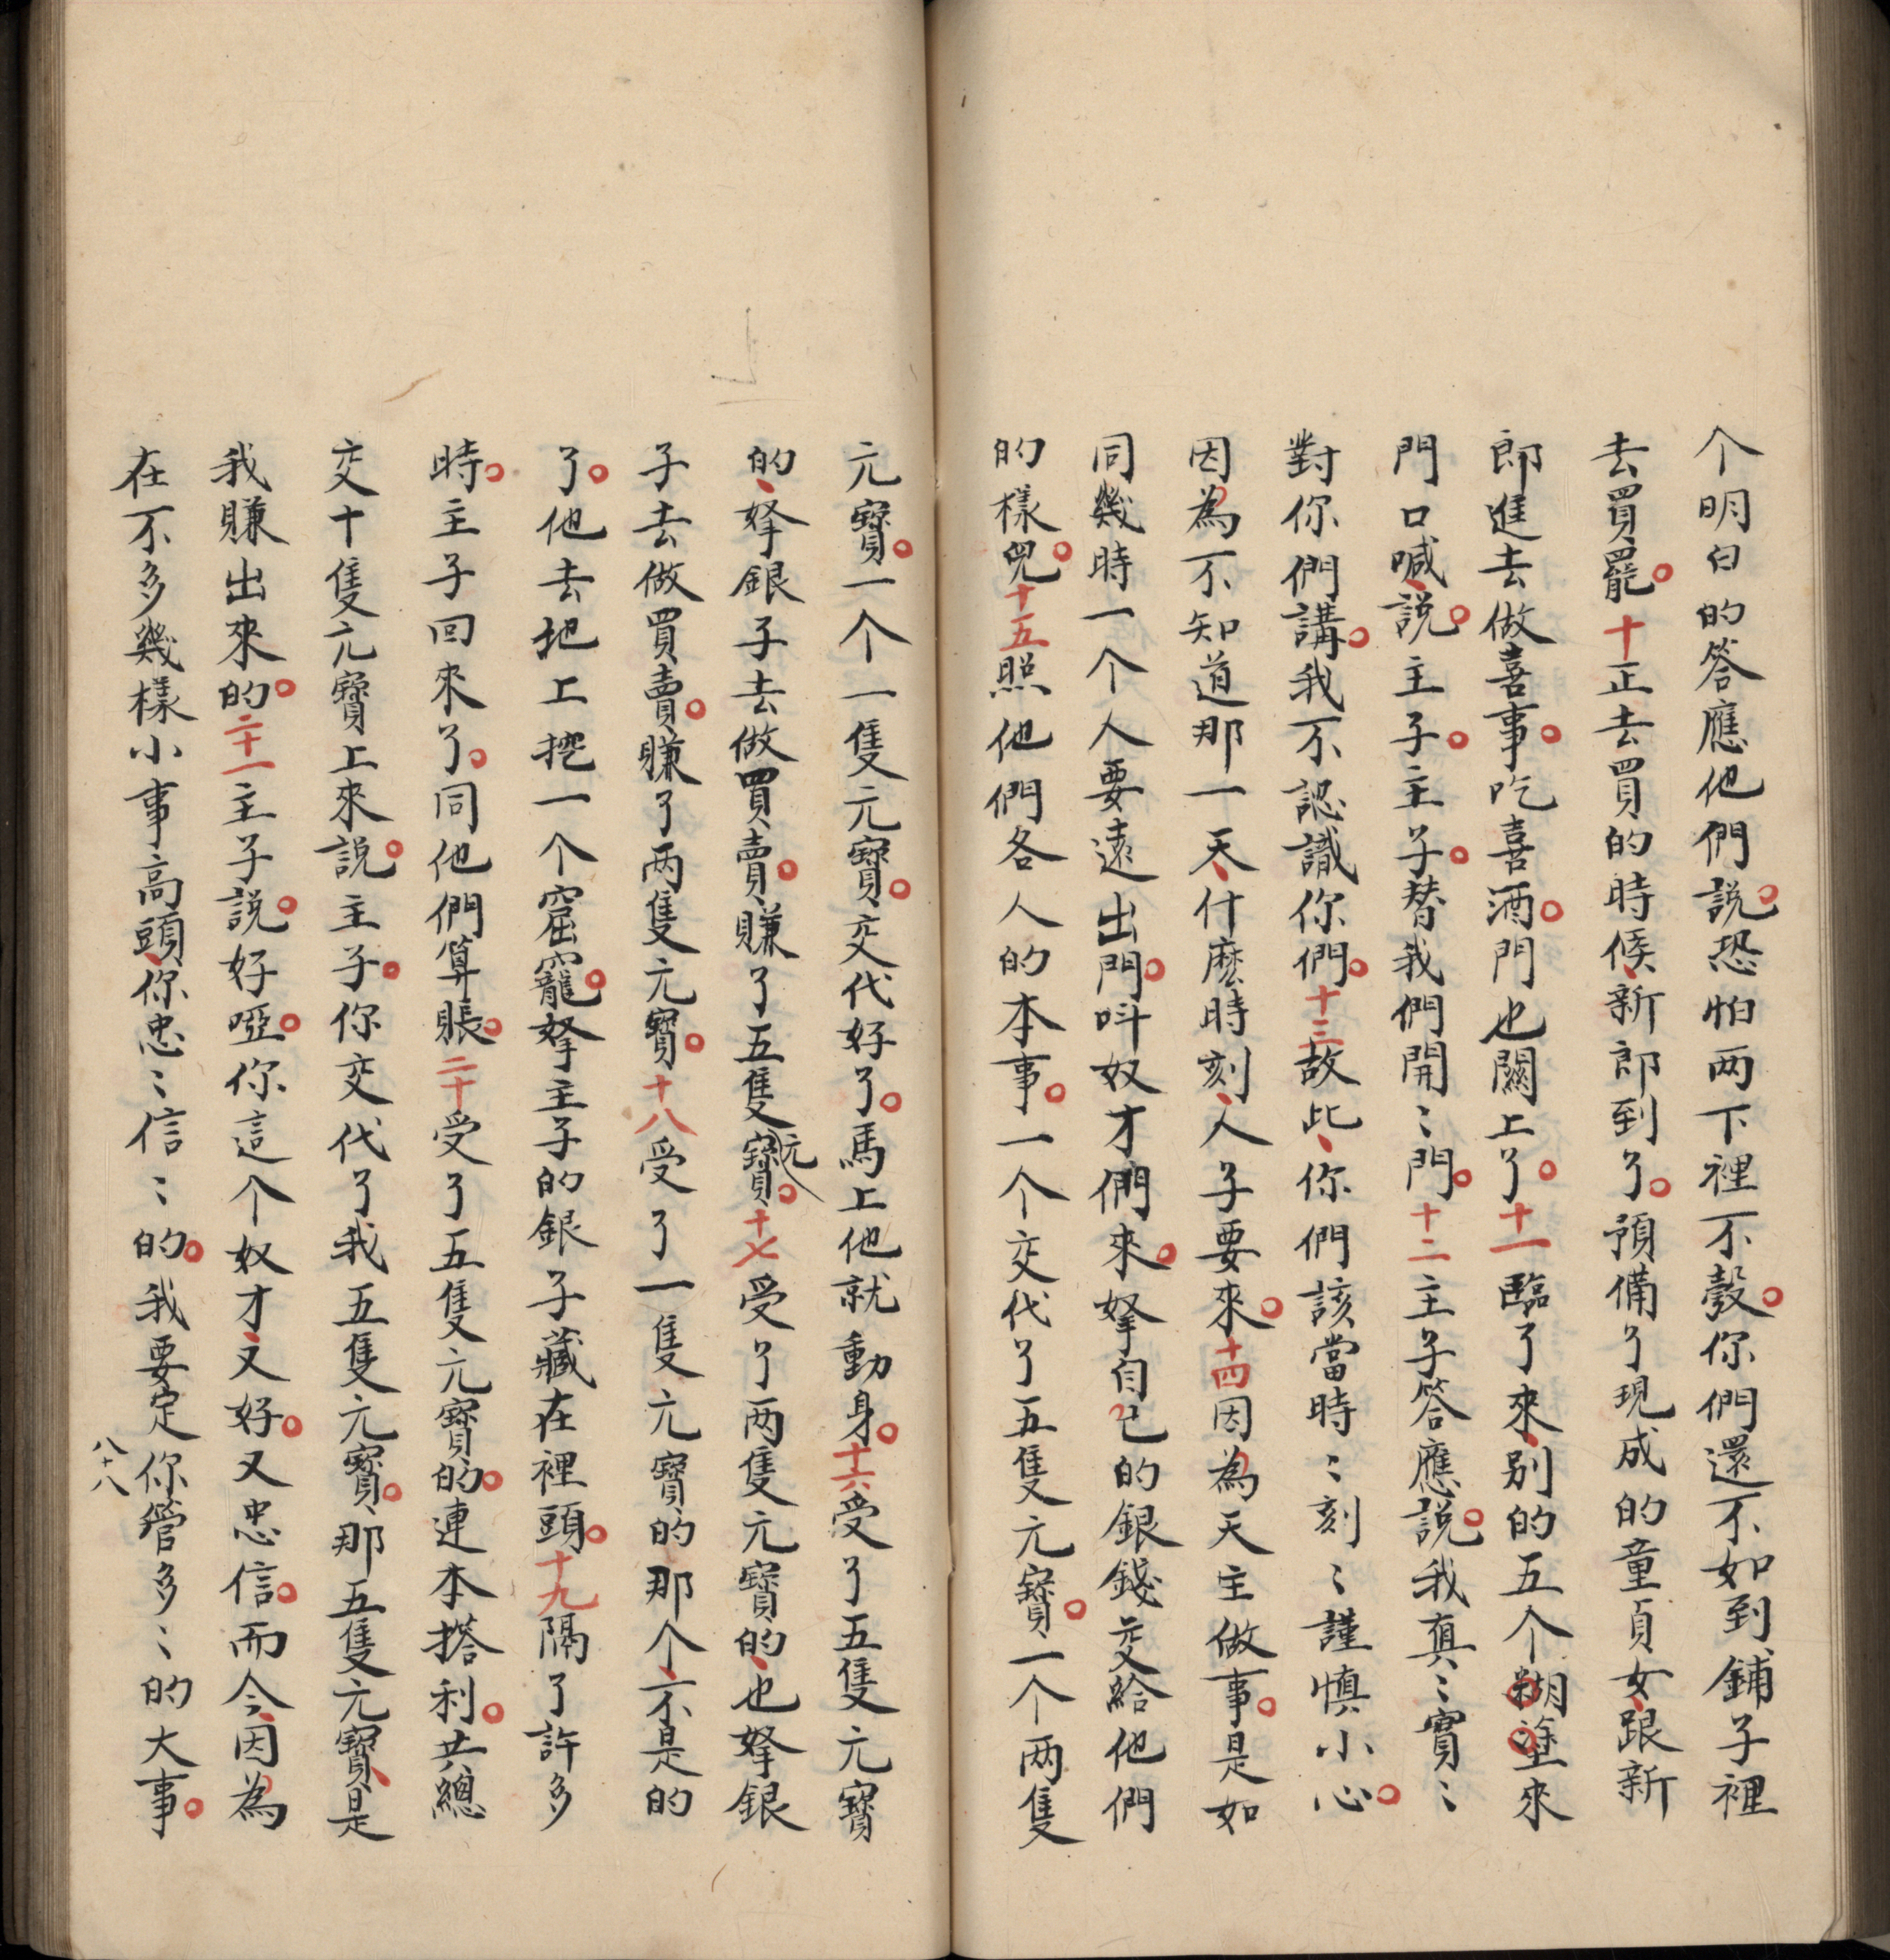 个明白的答應他們說。恐怕两下裡不彀。你們還不如到鋪子裡
去買罷。十正去買的時候、新郎到了。預備了現成的童貞女、跟新
郎進去做喜事。吃喜酒。門也關上了。十一臨了來、別的五个糊塗來
門口喊、說。主子。主子。替我們開〻門。十二主子答應說。我真〻實〻
對你們講。我不認識你們。十三故此、你們該當時〻刻〻謹慎小心。
因為不知道那一天、什麽時刻、人子要來。十四因為天主做事。是如
同幾時一个人要遠出門。呌奴才們來。拏自己的銀錢交給他們
的樣兒。十五照他們各人的本事。一个交代了五隻元寶。一个两隻
元寶。一个一隻元寶。交代好了。馬上他就動身。十六受了五隻元寶
的、拏銀子去做買賣。賺了五隻元寶。十七受了两隻元寶的、也拏銀
子去做買賣。賺了两隻元寶。十八受了一隻元寶的那个、不是的
了。他去地上挖一个窟竉。拏主子的銀子藏在裡頭。十九隔了許多
時。主子回來了。同他們算賬。二十受了五隻元寶的。連本搭利。共總
交十隻元寶上來說。主子。你交代了我五隻元寶。那五隻元寶、是
我賺出來的。二十一主子說。好啞。你這个奴才、又好。又忠信。而今、因為
在不多幾樣小事高頭、你忠〻信〻的。我要定你管多〻的大事。
八十八